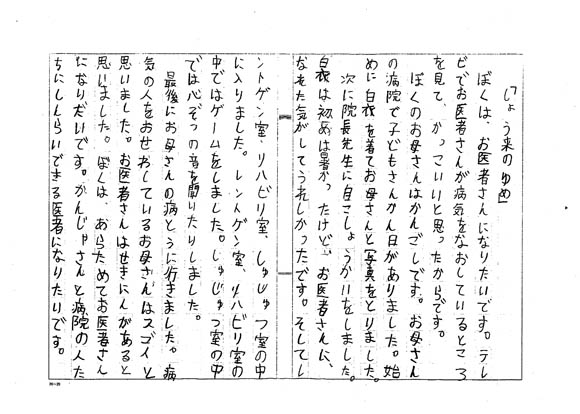 「しょう来のゆめ」
ぼくは、お医者さんになりたいです。テレ
ビでお医者さんが病気をなおしているところ
を見て、かっこいいと思ったからです。
ぼくのお母さんはかんごしです。お母さん
の病院で子どもさんかん日がありました。始
めに白衣を着てお母さんと写真をとりました。
次に院長先生に自こしょうかいをしました。
白衣は初めは暑かったけど、お医者さんに、
なれた気がしてうれしかったです。そしてレ
ントゲン室、リハビリ室、しゅじゅつ室の中
に入りました。レントゲン室、リハビリ室の
中ではゲームをしました。しゅじゅつ室の中
では心ぞうの音を聞いたりしました。
最後にお母さんの病とうに行きました。病
気の人をおせわしているお母さんはスゴイと
思いました。お医者さんはせきにんがあると
思いました。ぼくは、あらためてお医者さん
になりたいです。かんじゃさんと病院の人た
ちにしんらいできる医者になりたいです。